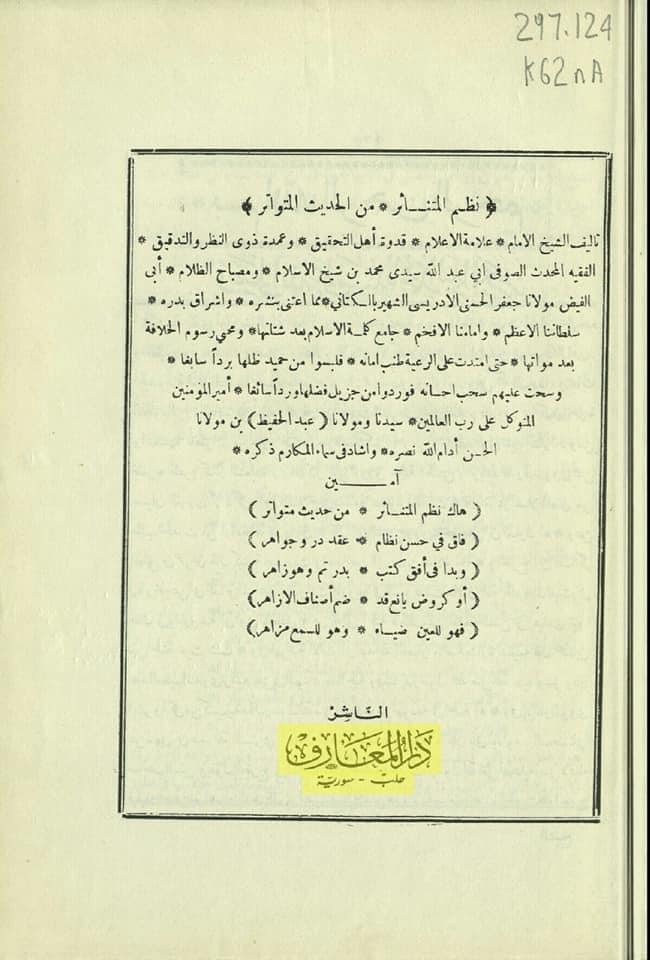 297.124
K62nA
﴿ نظم المتنـــاثر * من الحديث المتواتر ﴾
تاليف الشيخ الامام * علامة الاعلام * قدوة أهل التحقيق * وعمدة ذوى النظر والتدقيق *
الفقيه المحدث الصوفى ابي عبد الله سيدى محمد بن شيخ الاسلام * ومصباح الظلام * أبى
الفيض مولانا جعفر الحسنى الادريسى الشهير بالكتاني * مما اعتنى بنشره * واشراق بدره *
سلطاننا الاعظم * وامامنا الافخم * جامع كلمـة الاسلام بعد شتاتها * ومحيي رسوم الخلافة
بعد مواتها * حتى امتدت على الرعية طنب امانه * فلبسوا من حميد ظلها برداً سابغا *
وسحت عليهم سحب احسانه فوردوا من جزيل فضلها ورداً سائغا * أمير المؤمنين
المتوكل على رب العالمين * سيدنا ومولانا ( عبد الحفيظ ) بن مولانا
الحسن أدام الله نصره * واشاد فى سماء المكارم ذكره *
آمــــــين
( هاك نظم المتنـــاثر * من حديث متواتر )
( فاق في حسن نظام * عقد در وجواهر )
( وبدا فى أفق كتب * بدر تم وهو زاهر )
( أو كروض يانع قد * ضم أصناف الازاهر )
( فهو للعين ضيـاء * وهو للسمع مزاهر )
النَّاشِرْ
دَارُ المَعَارِفْ
حلب - سورية